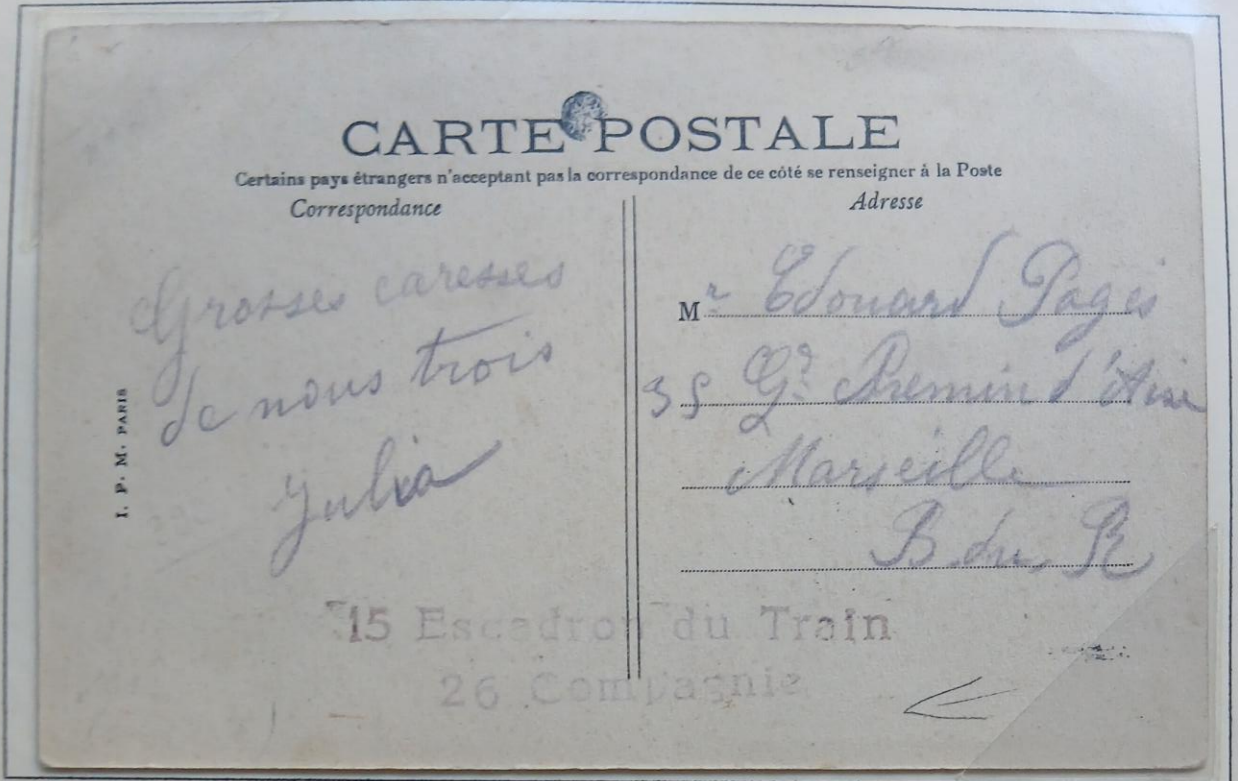 CARTE POSTALE
Certains pays étrangers n'acceptant pas la correspondance de ce côté se renseigner à la Poste
Correspondance
Adresse
Grosses caresses
de nous trois
Julia
I. P. M. PARIS
Mr Edouard Pagès
35 Gd Chemin d'Aix
Marseille
B. du R
15 Escadron du Train
26 Compagnie